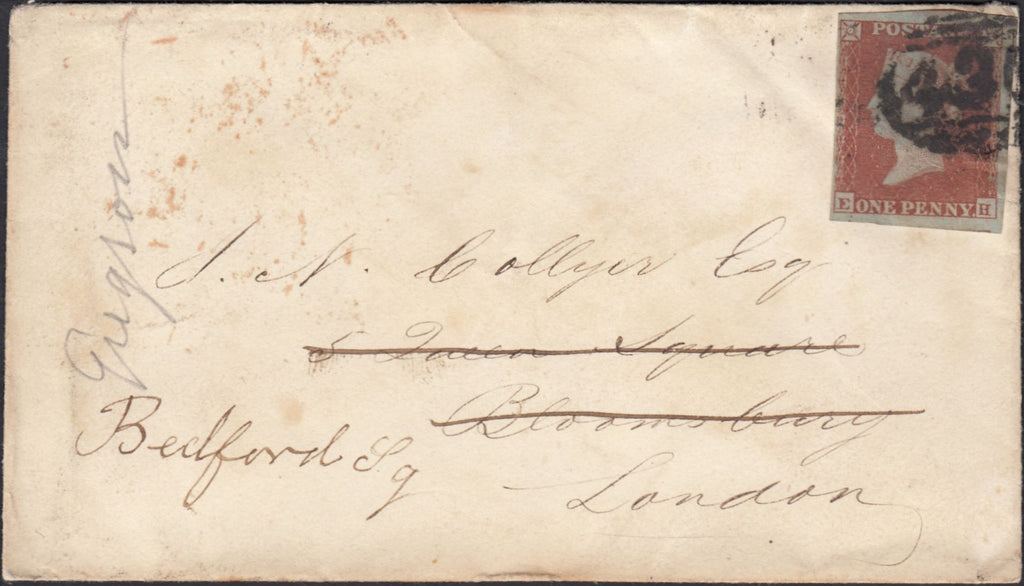 POSTA
E ONE PENNY. H
J. N. Collyer Esq
5 Queen Square
Bloomsbury
Bedford Sq
London